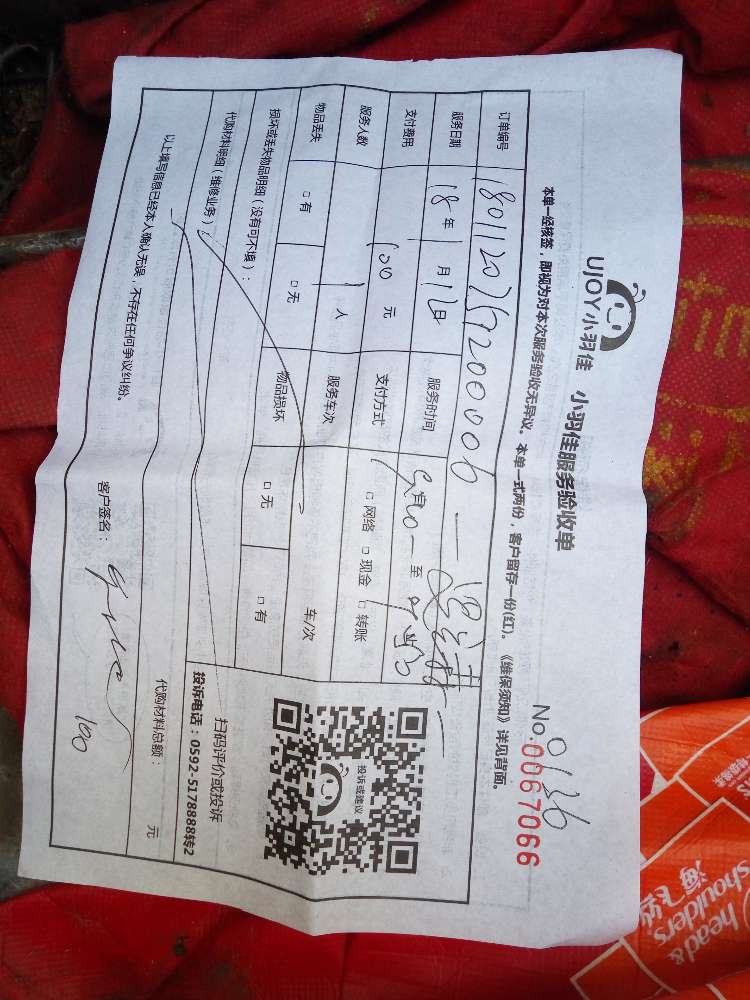 UJOY小羽佳 小羽佳服务验收单
No.0067066
0136
本单一经核签，即视为对本次服务验收无异议。本单一式两份，客户留存一份(红)。《维保须知》详见背面。
订单编号
服务日期 18年1月12日 服务时间 至
支付费用 100元 支付方式 □网络 □现金 □转账
服务人数 1人 服务车次 车/次
物品丢失 □有 □无 物品损坏 □无 □有
损坏或丢失物品明细（没有可不填）：
代购材料明细（维修业务）：
代购材料总额： 元
以上填写信息已经本人确认无误，不存在任何争议纠纷。
客户签名：
100
投诉或建议
扫码评价或投诉
投诉电话：0592-5178888转2
head &
shoulders
海飞丝